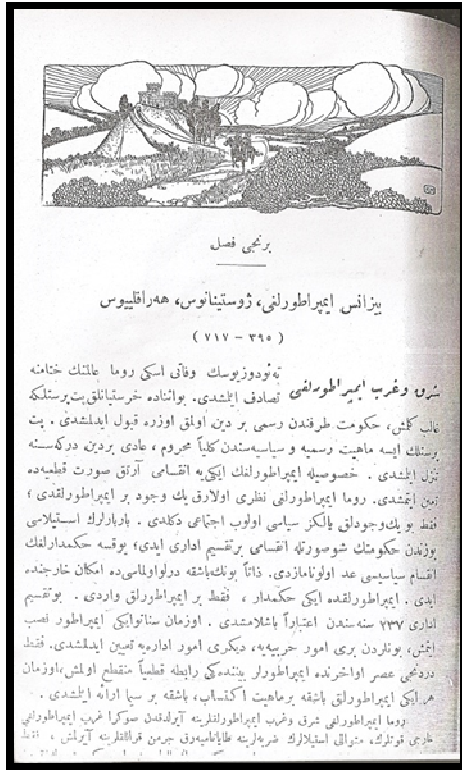 برنجی فصل
بیزانس ایمپراطورلغی، ژوستینیانوس، هەراقلیوس
( ٣٩٥ – ٧١٧ )
شرق وغرب ایمپراطورلغی تەئودوزیوسك وفاتی اسكی روما عالمنك ختامنه
تصادف ایلمشدی. یونانده خرستیانلق بت پرستلكه
غالب كلمش، حكومت طرفندن رسمی بر دین اولمق اوزره قبول ایدلمشدی. بت
پرستلك ایسه ماهیت رسمیه و سیاسیه سندن كلیاً محروم، عادی بر دین دركه سنه
تنزل ایتمشدی. خصوصیله ایمپراطورلغك ایكی یه انقسامی آرتق صورت قطعیه ده
تعین ایتمشدی. روما ایمپراطورلغی نظری اولارق یك وجود بر ایمپراطورلقدی؛
فقط بو یك وجودلق یالكز سیاسی اولوب اجتماعی دكلدی. باربارلرك استیلاسی
یوزندن حكومتك شو صورتله انقسامی بر تقسیم اداری ایدی؛ یوقسه حكمدارلغك
انقسام سیاسیسی عد اولونامازدی. ذاتاً بونك باشقه درلو اولمالی ده امكان خارجنده
ایدی. ایمپراطورلقده ایكی حكمدار، فقط بر ایمپراطورلق واردی. بو تقسیم
اداری ٣٣٧ سنه سندن اعتباراً باشلامشدی. اوزمان سنا تو ایكی ایمپراطور نصب
ایتمش، بونلردن بری امور حربیه یه، دیكری امور اداره یه تعیین ایدلمشدی. فقط
دردنجی عصر اواخرنده ایمپراطورلر بیننده كی رابطه قطعیاً منقطع اولمش، اوزمان
هر ایكی ایمپراطورلق باشقه بر ماهیت اكتساب، باشقه بر سیما ارائه ایلمشدی.
روما ایمپراطورلغی شرق وغرب ایمپراطورلقلرینه آیرلدقدن صوكرا غرب ایمپراطورلغی
خارجی قوتلرك، متوالی استیلالرك ضربه لرینه طایانامایه رق جرمن قراللقلرینه آیرلمش، فقط